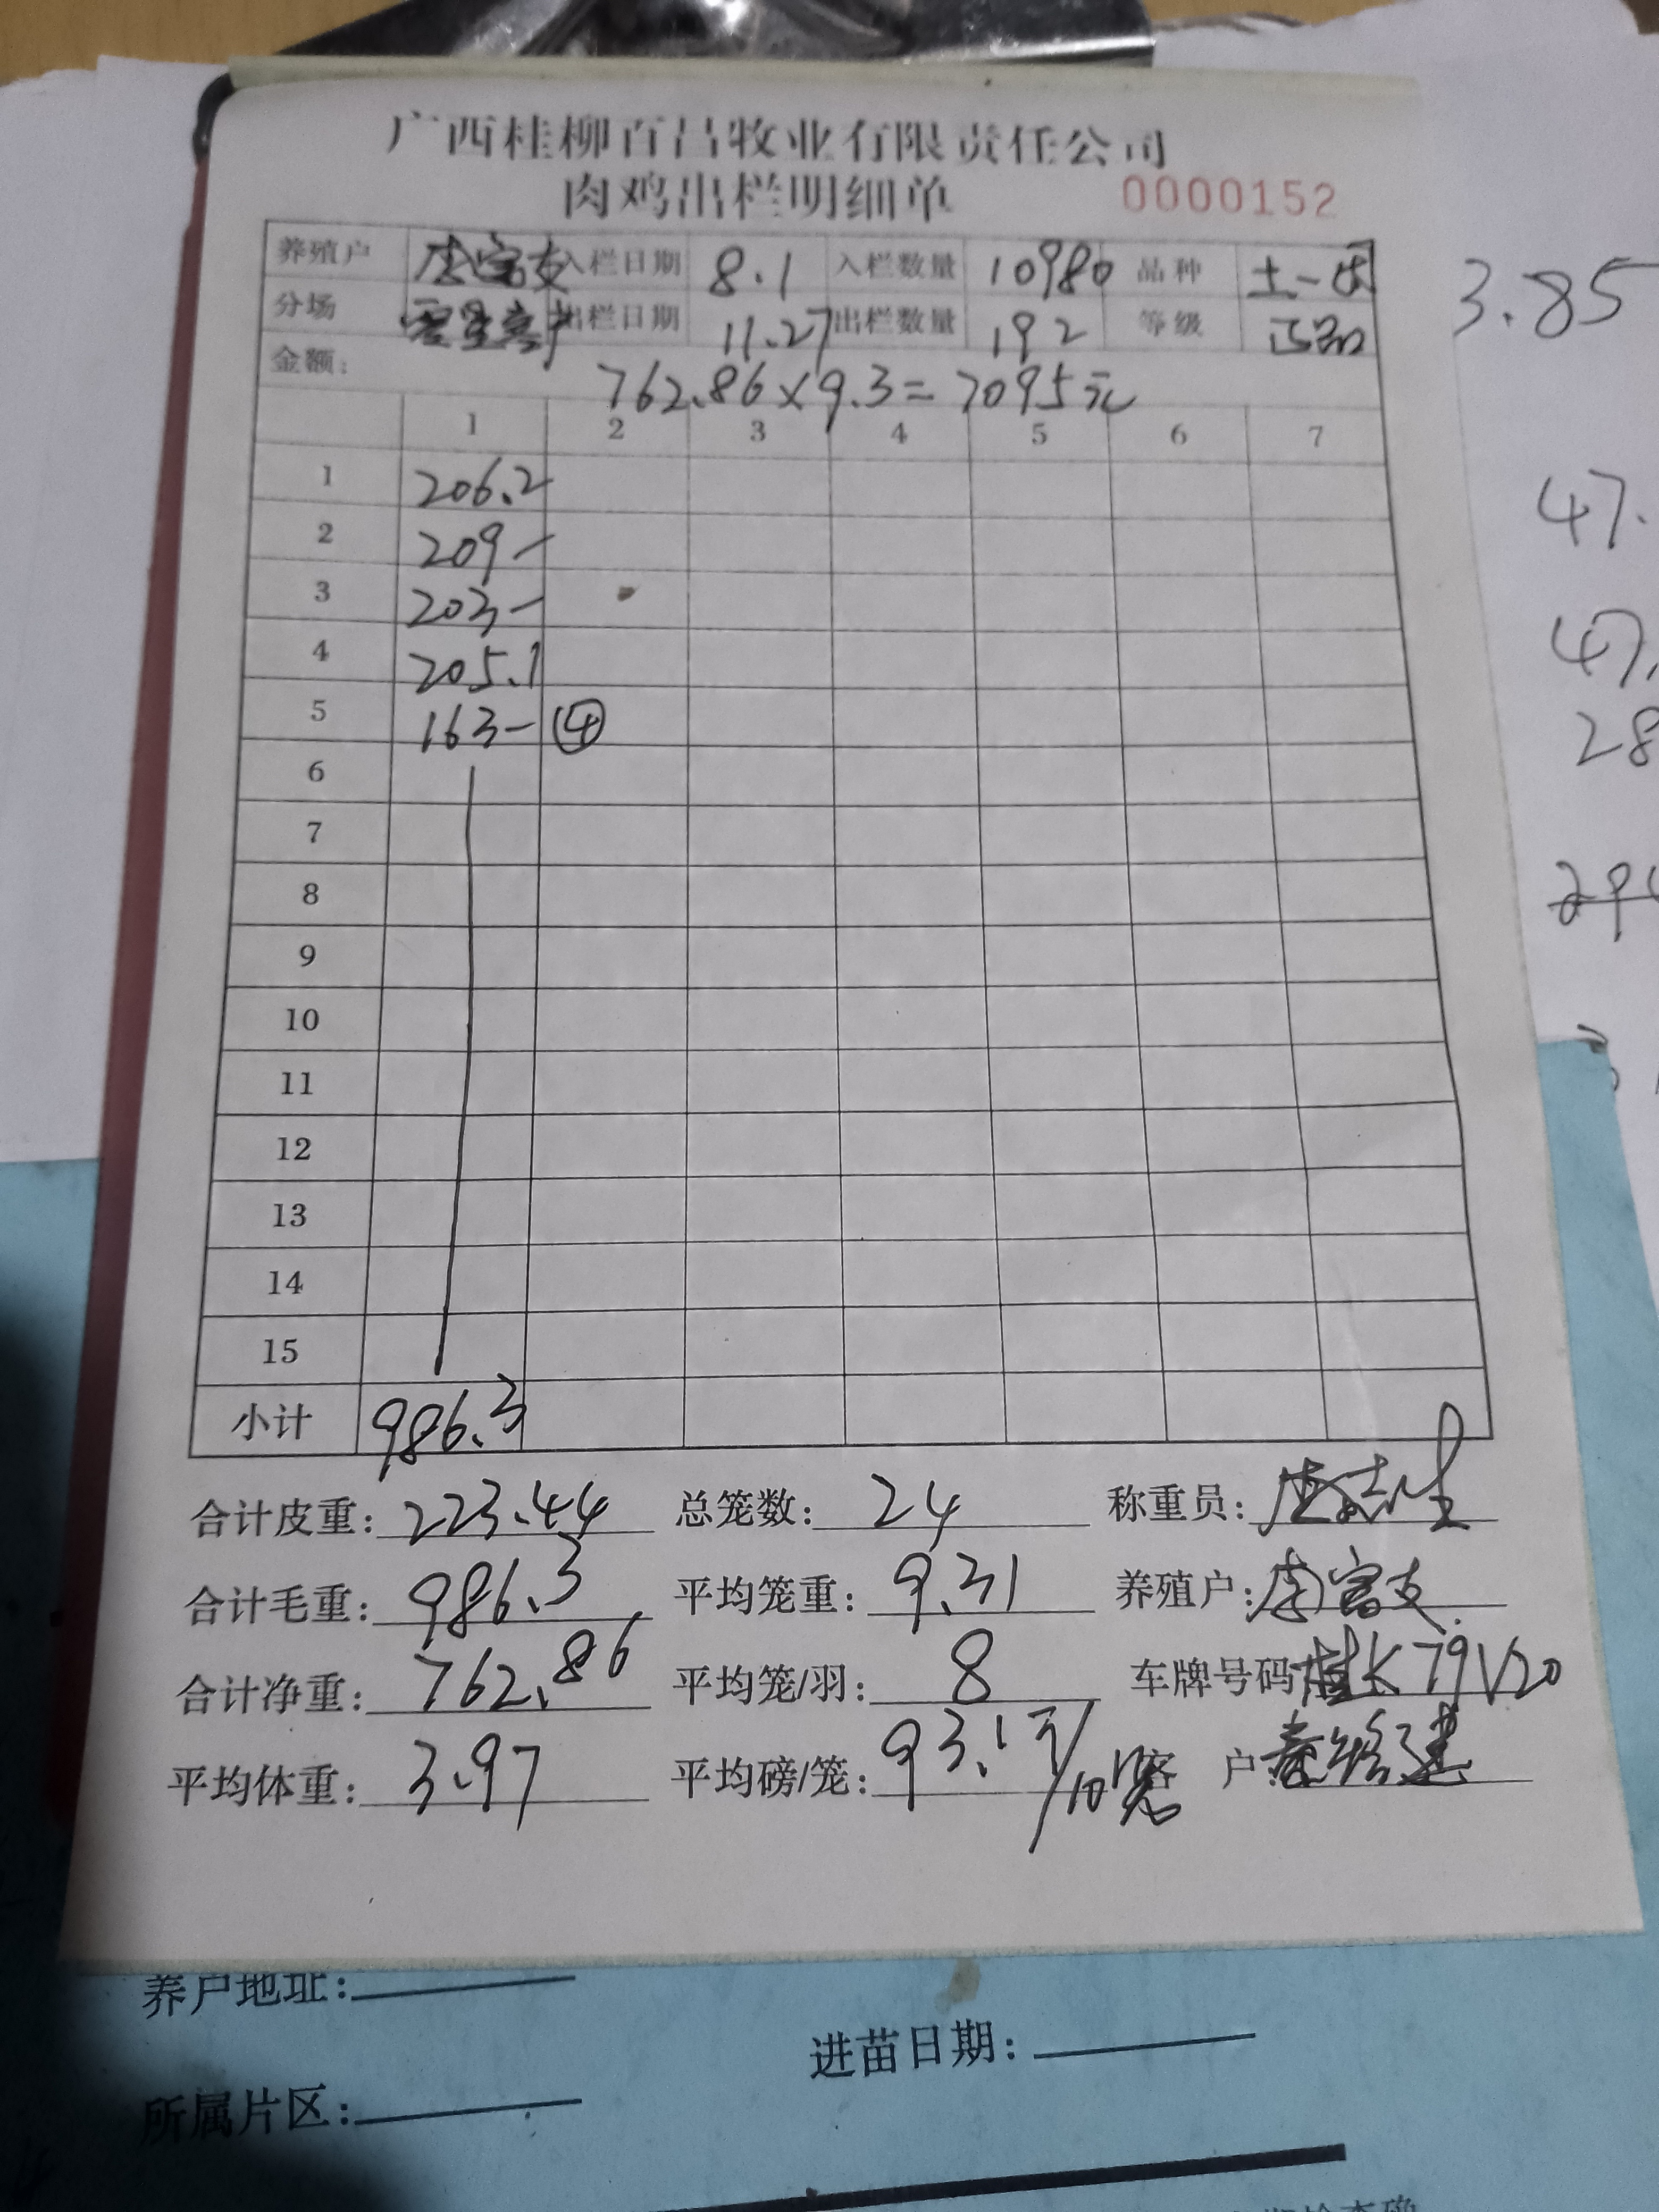 广西桂柳百昌牧业有限责任公司
肉鸡出栏明细单 0000152
养殖户 李富支 入栏日期 8.1 入栏数量 10980 品种 土一
分场 出栏日期 11.27 出栏数量 192 等级 正品
金额: 762.86×9.3=7095元
1 2 3 4 5 6 7
1 206.2
2 209-
3 203-
4 205.1
5 163- ④
6
7
8
9
10
11
12
13
14
15
小计 986.3
合计皮重: 223.44 总笼数: 24 称重员:
合计毛重: 986.3 平均笼重: 9.31 养殖户: 李富支
合计净重: 762.86 平均笼/羽: 8 车牌号码 桂K79V20
平均体重: 3.97 平均磅/笼: 93.1元/10 客户
3.85
47.
47.
28
养户地址:
进苗日期:
所属片区: